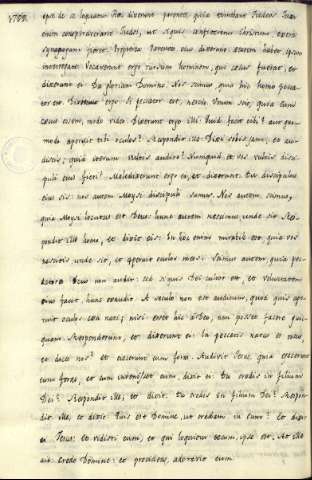 ipse de se loquatur. Hæc dixerunt parentes quia timebant Judæos. Jam
enim conspiraverant Judæi, ut si quis confiteretur Christum extra
synagogam fieret. Propterea Parentes ejus dixerunt: ætatem habet, ipsum
interrogate. Vocaverunt ergo rursum hominem, qui cæcus fuerat, et
dixerunt ei: Da gloriam Domino. Nos scimus, quia hic homo pecca-
tor est. Dixit ergo: Si peccator est, nescio. Unum scio, quia cum
cæcus essem, modo video. Dixerunt ergo illi: Quid fecit tibi? quo-
modo aperuit tibi oculos? Respondit illi: Dixi vobis jam, et au-
distis; quid iterum vultis audire? Numquid, et vos vultis disci-
puli ejus fieri? Maledixerunt ergo ei, et dixerunt: Tu discipulus
ejus sis: nos autem Moysi discipuli sumus. Nos scimus,
quia Moysi locutus est Deus: hunc autem nescimus unde sit. Res-
pondit ille homo, et dixit eis: In hoc enim mirabile est quia vos
nescitis unde sit, et aperuit oculos meos. Scimus autem, quia pec-
catores Deus non audit: sed si quis Dei cultor est, et voluntatem
ejus facit, hunc exaudit. A sæculo non est auditum, quod quis ape-
ruit oculos cæci nati; nisi esset hic a Deo, non posset facere quid-
quam. Responderunt, et dixerunt ei: In peccatis natus es totus,
et tu doces nos? et ejecerunt eum foras. Audivit Jesus, quia ejecerunt
eum foras, et cum invenisset eum, dixit ei: Tu credis in filium
Dei? Respondit ille, et dixit: Tu credis in filium Dei? Respon-
dit ille, et dixit: Quis est Domine, ut credam in eum? Et dixit
ei Jesus: Et vidisti eum, et qui loquitur tecum, ipse est. At ille
ait: Credo Domine: et procidens, adoravit eum.